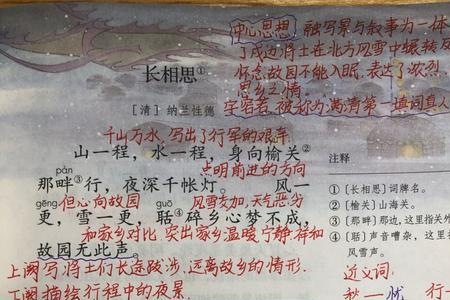 中心思想 融写景与叙事为一体
了戍边将士在北方风雪中辗转反
怀念故园不能入眠,表达了浓烈
思乡之情。
字容若,被称为满清第一填词真人
长相思①
[清]纳兰性德
千山万水,写出了行军的艰辛
山一程,水一程,身向榆关②
点明前进的方向
pàn
那畔③行,夜深千帐灯。 风一
gēng但心向故园 guō 风雪交加,天气恶劣
更,雪一更,聒④碎乡心梦不成,
和家乡对比 突出家乡温暖,宁静,祥和
故园无此声。
上阕写:将士们长途跋涉,远离故乡的情形.
下阕描绘行程中的夜景.
注释
①〔长相思〕词牌名。
②〔榆关〕山海关。
③〔那畔〕那边,这里指关外
④〔聒〕声音嘈杂,这里指
风雪声。
近义词: